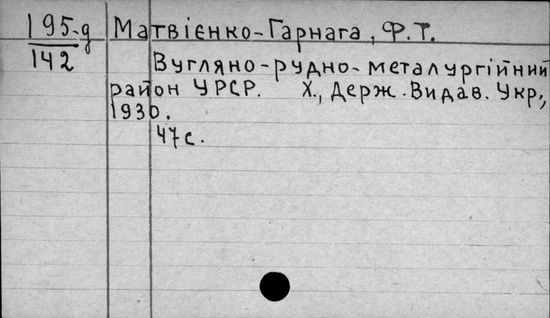 195-д
142
Матвієнко-Гарнага, Ф.Т.
Вугляно-рудно-металургійний
район УРСР. Х., Держ.Видав.Укр.,
1930.
47с.